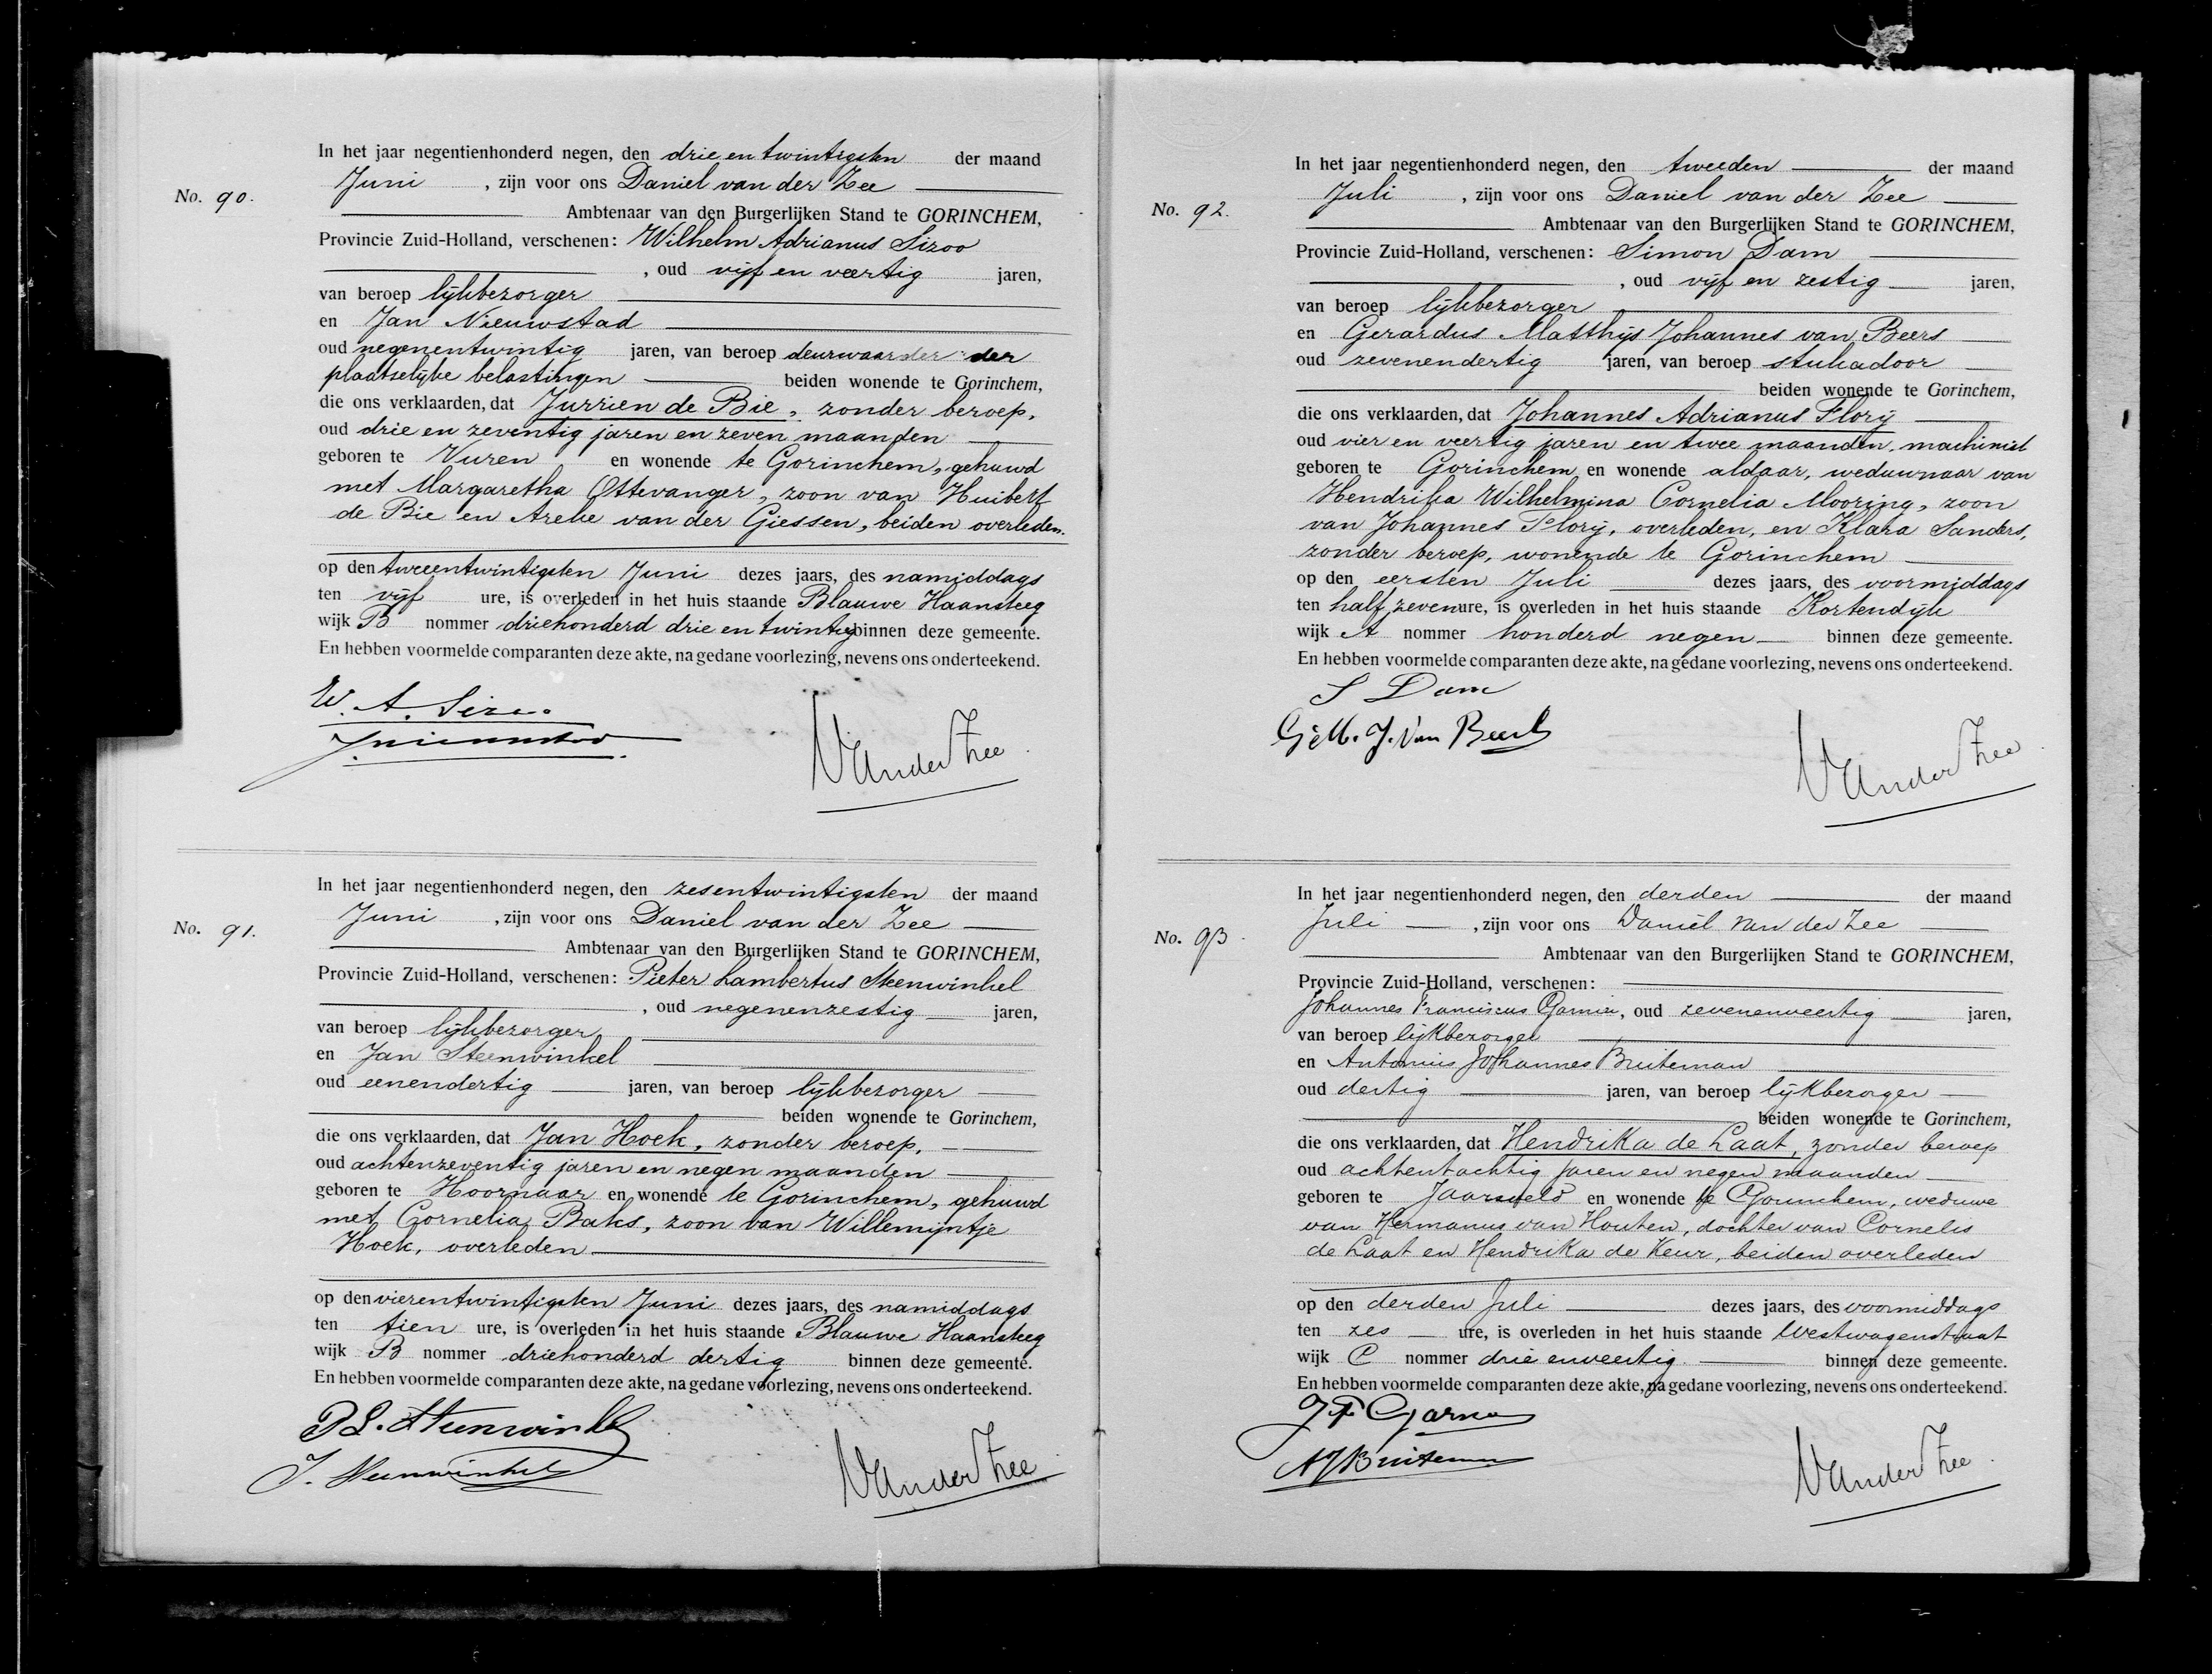 No. 90.
In het jaar negentienhonderd negen, den drie en twintigsten der maand
Juni, zijn voor ons Daniel van der Zee
Ambtenaar van den Burgerlijken Stand te GORINCHEM,
Provincie Zuid-Holland, verschenen: Wilhelm Adrianus Sizoo
, oud vijf en veertig jaren,
van beroep lijkbezorger
en Jan Nieuwstad
oud negenentwintig jaren, van beroep deurwaarder der
plaatselijke belastingen beiden wonende te Gorinchem,
die ons verklaarden, dat Jurrien de Bie, zonder beroep,
oud drie en zeventig jaren en zeven maanden
geboren te Vuren en wonende te Gorinchem, gehuwd
met Margaretha Ottevanger, zoon van Huibert
de Bie en Areke van der Giessen, beiden overleden.
op den tweeentwintigsten Juni dezes jaars, des namiddags
ten vijf ure, is overleden in het huis staande Blauwe Haansteeg
wijk B nommer driehonderd drie en twintig binnen deze gemeente.
En hebben voormelde comparanten deze akte, na gedane voorlezing, nevens ons onderteekend.
W. A. Sizoo
J. Nieuwstad
VanderZee
No. 91.
In het jaar negentienhonderd negen, den zesentwintigsten der maand
Juni, zijn voor ons Daniel van der Zee
Ambtenaar van den Burgerlijken Stand te GORINCHEM,
Provincie Zuid-Holland, verschenen: Pieter Lambertus Steenwinkel
, oud negenenzestig jaren,
van beroep lijkbezorger
en Jan Steenwinkel
oud eenendertig jaren, van beroep lijkbezorger
beiden wonende te Gorinchem,
die ons verklaarden, dat Jan Hoek, zonder beroep,
oud achtenzeventig jaren en negen maanden
geboren te Hoornaar en wonende te Gorinchem, gehuwd
met Cornelia Baks, zoon van Willemijntje
Hoek, overleden
op den vierentwintigsten Juni dezes jaars, des namiddags
ten tien ure, is overleden in het huis staande Blauwe Haansteeg
wijk B nommer driehonderd dertig binnen deze gemeente.
En hebben voormelde comparanten deze akte, na gedane voorlezing, nevens ons onderteekend.
P L. Steenwinkel
J. Steenwinkel
VanderZee
No. 92.
In het jaar negentienhonderd negen, den tweeden der maand
Juli, zijn voor ons Daniel van der Zee
Ambtenaar van den Burgerlijken Stand te GORINCHEM,
Provincie Zuid-Holland, verschenen: Simon Dam
, oud vijf en zestig jaren,
van beroep lijkbezorger
en Gerardus Matthijs Johannes van Beers
oud zevenendertig jaren, van beroep stukadoor
beiden wonende te Gorinchem,
die ons verklaarden, dat Johannes Adrianus Florij
oud vier en veertig jaren en twee maanden, machinist
geboren te Gorinchem en wonende aldaar, weduwnaar van
Hendrika Wilhelmina Cornelia Mooring, zoon
van Johannes Florij, overleden, en Klara Sanders,
zonder beroep, wonende te Gorinchem
op den eersten Juli dezes jaars, des voormiddags
ten half zeven ure, is overleden in het huis staande Kortendijk
wijk A nommer honderd negen binnen deze gemeente.
En hebben voormelde comparanten deze akte, na gedane voorlezing, nevens ons onderteekend.
S Dam
G. M. J. Van Beers
VanderZee
No. 93
In het jaar negentienhonderd negen, den derden der maand
Juli, zijn voor ons Daniël van der Zee
Ambtenaar van den Burgerlijken Stand te GORINCHEM,
Provincie Zuid-Holland, verschenen:
Johannes Franciscus Garnier, oud zevenenveertig jaren,
van beroep lijkbezorger
en Antonius Johannes Bruiteman
oud dertig jaren, van beroep lijkbezorger
beiden wonende te Gorinchem,
die ons verklaarden, dat Hendrika de Laat, zonder beroep
oud achtentachtig jaren en negen maanden
geboren te Jaarsveld en wonende te Gorinchem, weduwe
van Hermanus van Houten, dochter van Cornelis
de Laat en Hendrika de Keur, beiden overleden
op den derden Juli dezes jaars, des voormiddags
ten zes ure, is overleden in het huis staande Westwagenstraat
wijk C nommer drie enveertig binnen deze gemeente.
En hebben voormelde comparanten deze akte, na gedane voorlezing, nevens ons onderteekend.
J F Garnier
AJBruiteman
VanderZee